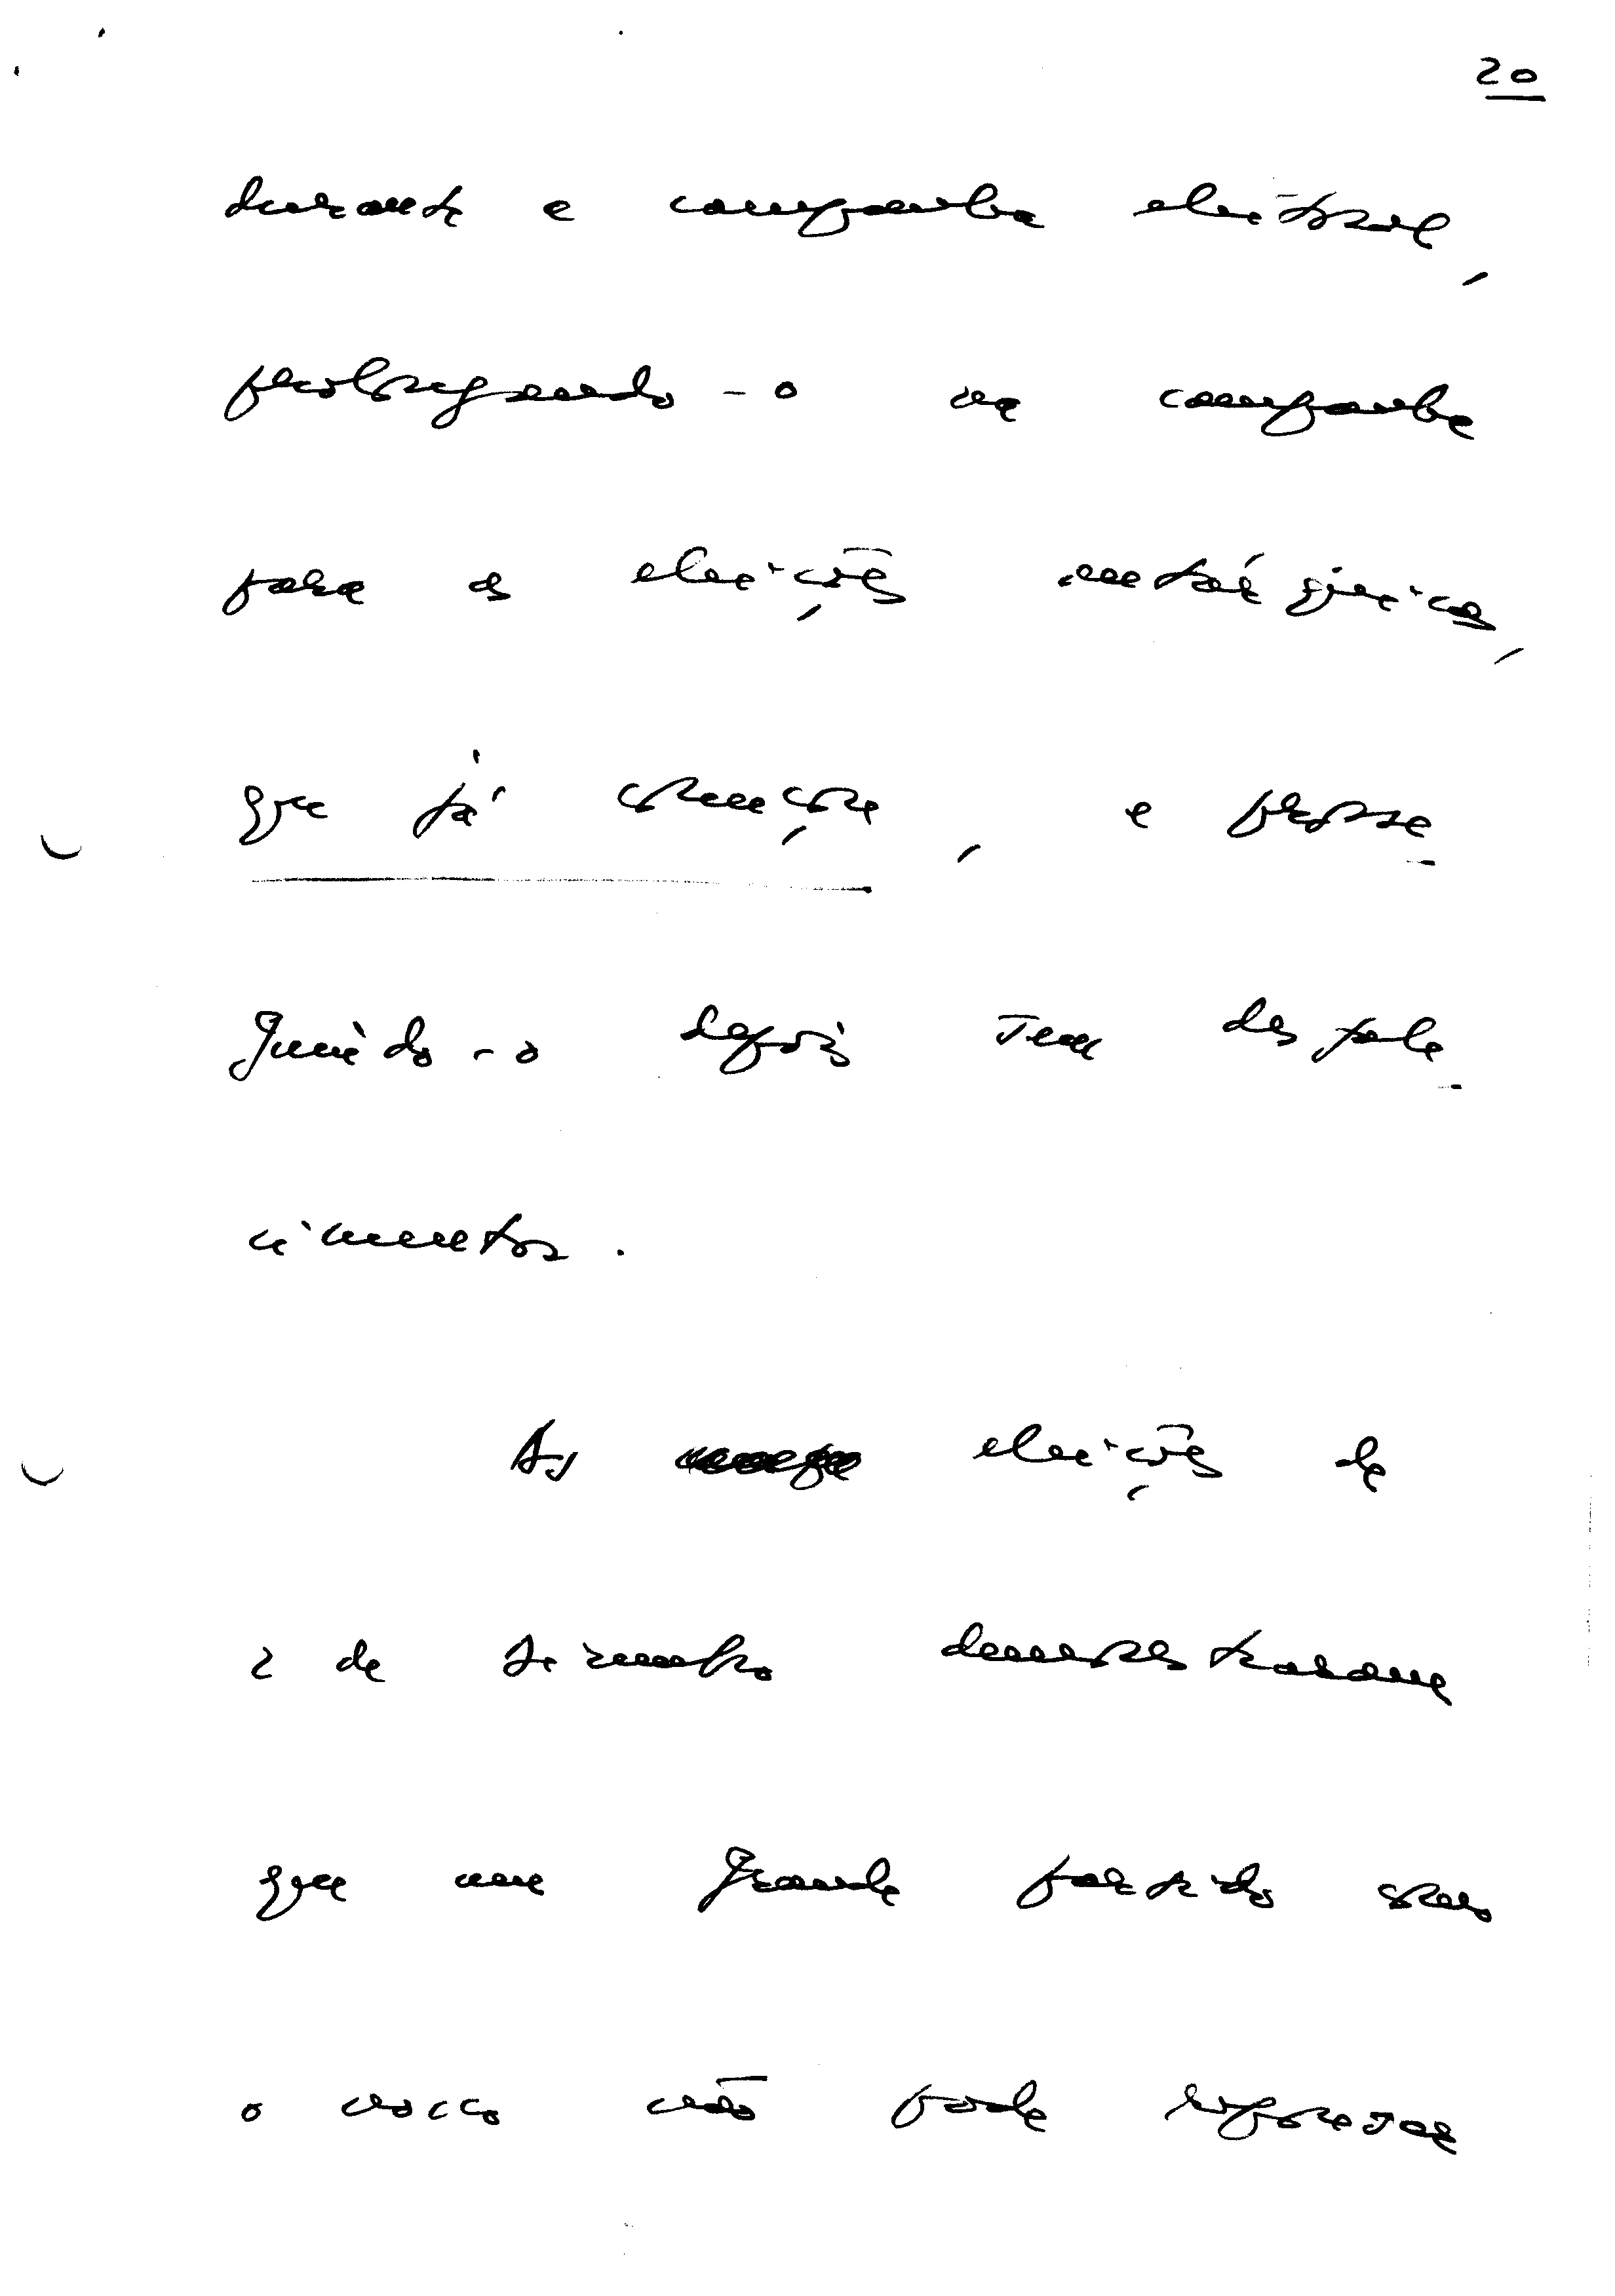 20
durante a campanha eleitoral,
prolongando-o na campanha
para as eleições autárquicas,
que já começou, e prosse-
guindo-o depois sem desfale-
cimentos.
As eleições de
2 de Dezembro demonstraram
que um grande partido como
o nosso não pode